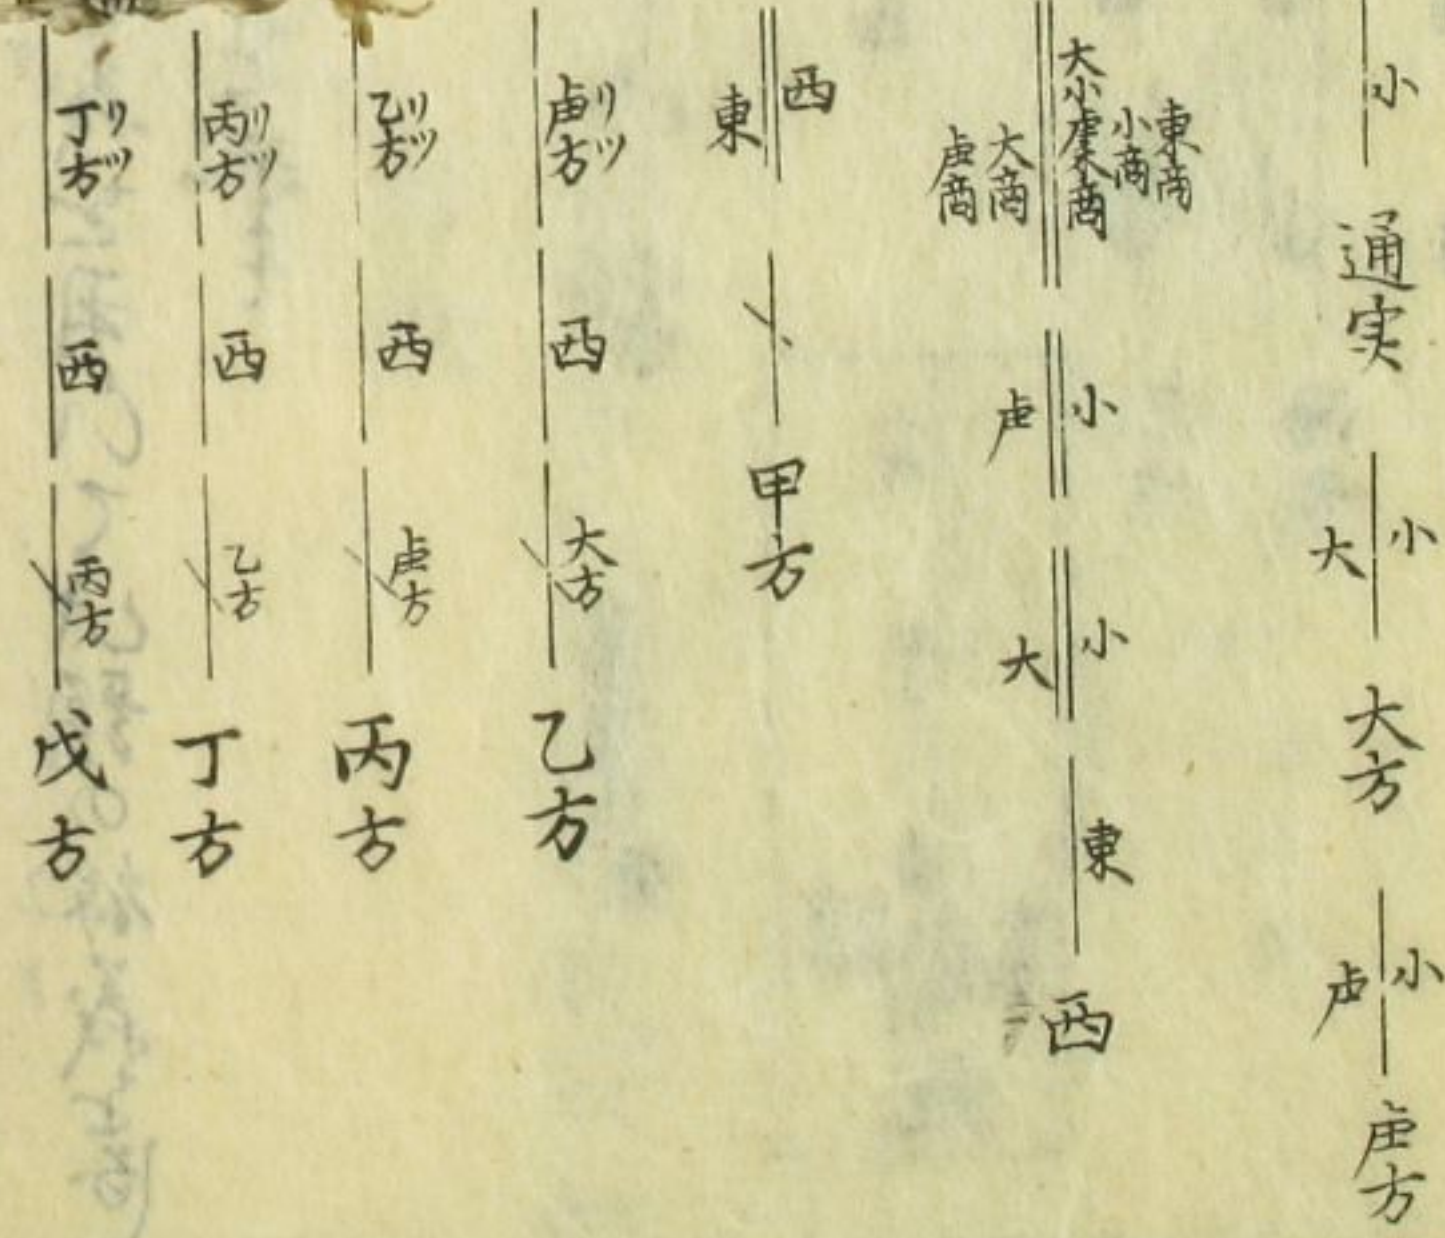 小 通実 小 大 大方 小 虚 虚方
大小虚未商 小商 東商 大商 虚商 小 虚 小 大 東 西
西 東 甲方
虚方 リツ 西 大方 乙方
乙方 リツ 西 虚方 丙方
丙方 リツ 西 乙方 丁方
丁方 リツ 西 丙方 戊方